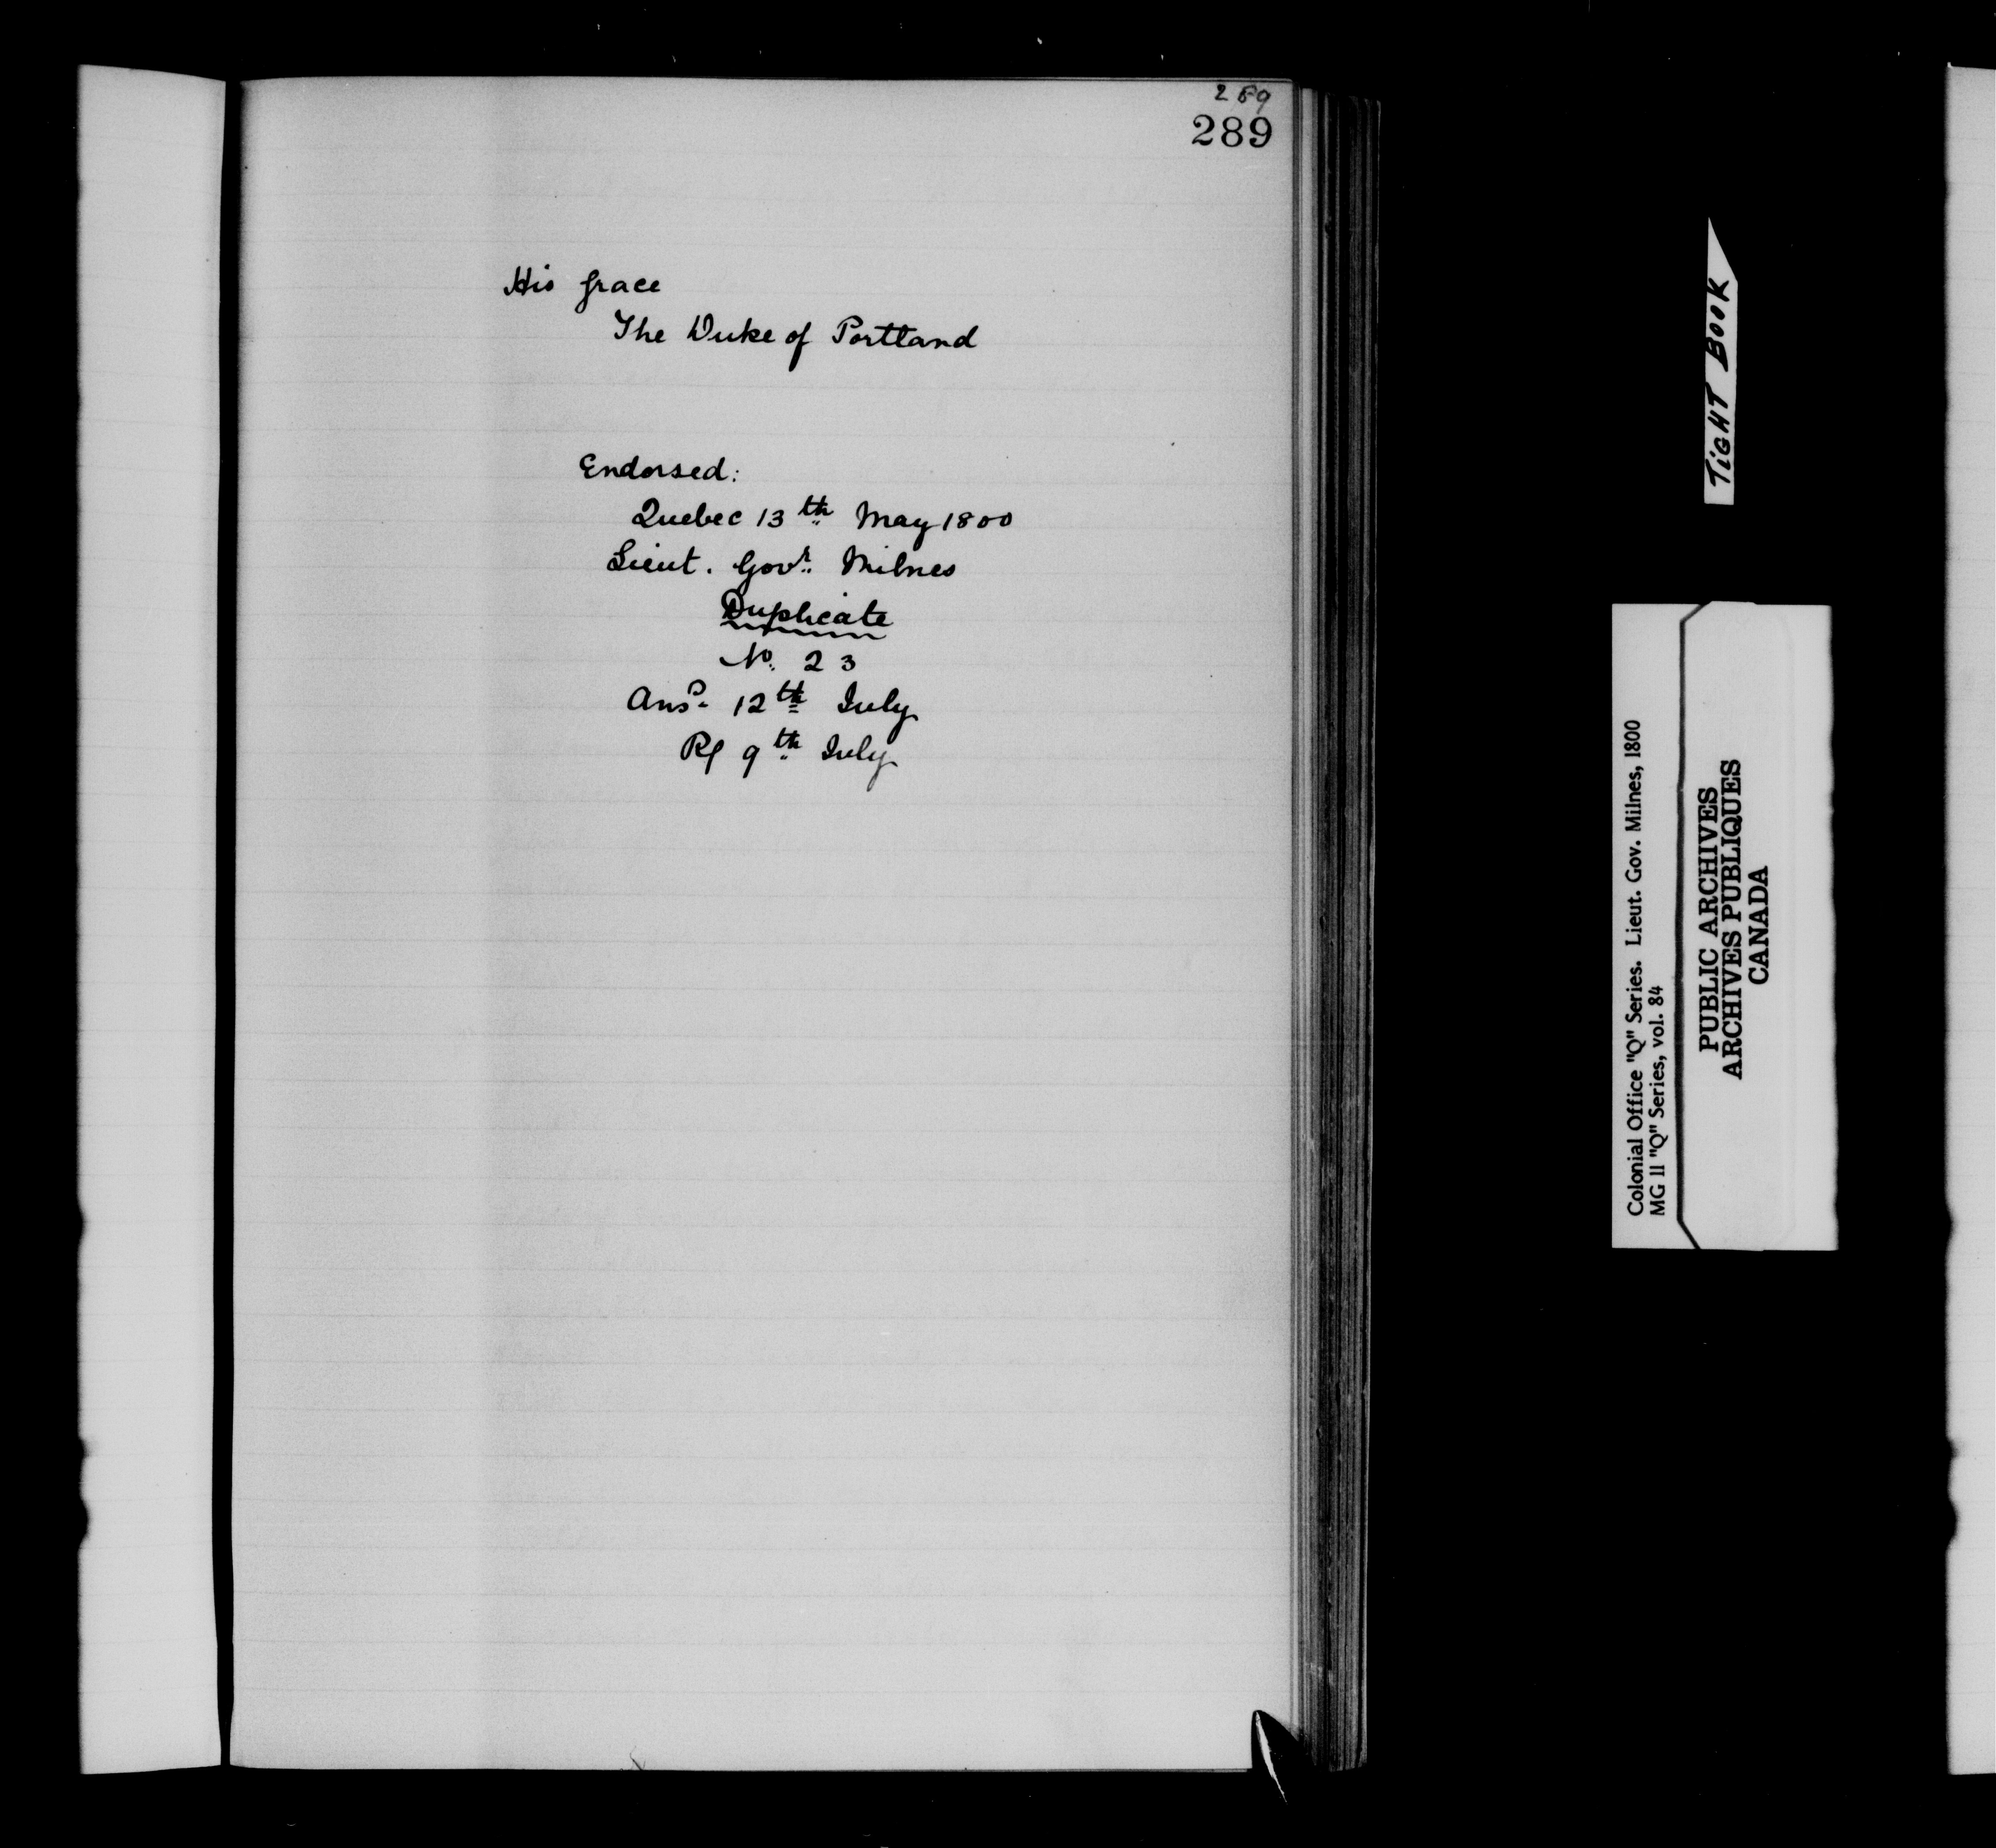 289
289
His Grace
The Duke of Portland
Endorsed:
Quebec 13th May 1800
Lieut. Govr. Milnes
Duplicate
No. 23
Ansd. 12th July
Rf 9th July
TIGHT BOOK
Colonial Office "Q" Series. Lieut. Gov. Milnes, 1800
MG 11 "Q" Series, vol. 84
PUBLIC ARCHIVES
ARCHIVES PUBLIQUES
CANADA